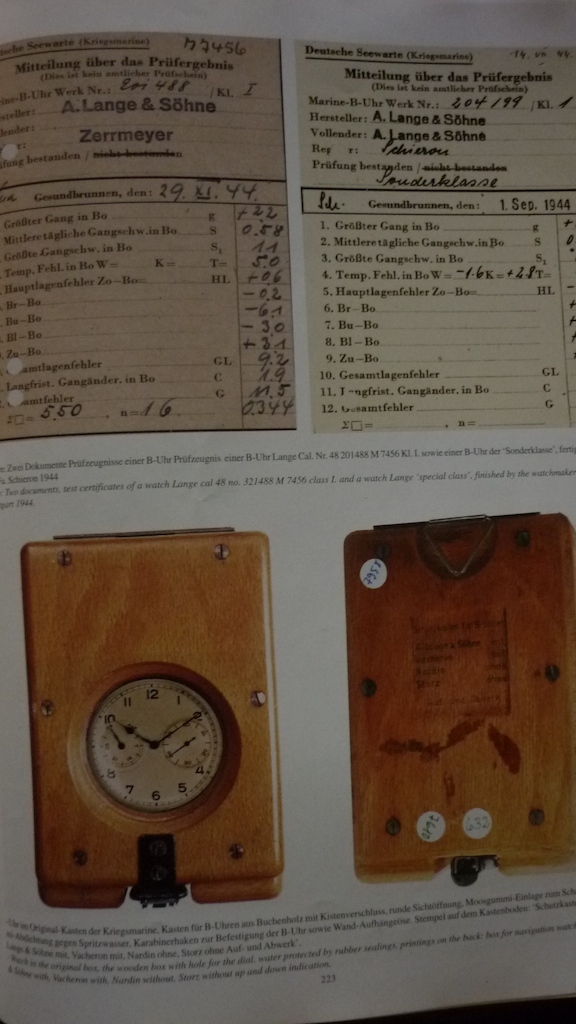 Deutsche Seewarte (Kriegsmarine)
M 7456
Mitteilung über das Prüfergebnis
(Dies ist kein amtlicher Prüfschein)
ine-B-Uhr Werk Nr.: 201488 /Kl. I
steller: A. Lange & Söhne
lender: Zerrmeyer
r:
fung bestanden / nicht bestanden
Gesundbrunnen, den: 29. XI. 44.
Größter Gang in Bo g +2,2
Mittlere tägliche Gangschw. in Bo S 0.58
Größte Gangschw. in Bo S₁ 1.1
Temp. Fehl. in Bo W= K= T= 5.0
Hauptlagenfehler Zo–Bo= HL +0,6
Br–Bo -0,2
Bu–Bo -6,1
Bl–Bo -3,0
Zu–Bo +3,1
amtlagenfehler GL 9,2
Langfrist. Gangänder. in Bo C 1,9
amtfehler G 11.5
Σ□= 5.50 n= 16 0.344
Deutsche Seewarte (Kriegsmarine)
14. VII. 44.
Mitteilung über das Prüfergebnis
(Dies ist kein amtlicher Prüfschein)
Marine-B-Uhr Werk Nr.: 204199 /Kl. 1
Hersteller: A. Lange & Söhne
Vollender: A. Lange & Söhne
Reg r: Schieron
Prüfung bestanden / nicht bestanden
Sonderklasse
Gesundbrunnen, den: 1. Sep. 1944
1. Größter Gang in Bo g +
2. Mittlere tägliche Gangschw. in Bo S 0
3. Größte Gangschw. in Bo S₁
4. Temp. Fehl. in Bo W= -1.6 K= +2.8 T=
5. Hauptlagenfehler Zo–Bo= HL
6. Br–Bo
7. Bu–Bo
8. Bl–Bo
9. Zu–Bo
10. Gesamtlagenfehler GL
11. Langfrist. Gangänder. in Bo C
12. Gesamtfehler G
Σ□= n=
n: Zwei Dokumente Prüfzeugnisse einer B-Uhr Prüfzeugnis einer B-Uhr Lange Cal. Nr. 48 201488 M 7456 Kl. I. sowie einer B-Uhr der 'Sonderklasse', fertig
Fa. Schieron 1944
: Two documents, test certificates of a watch Lange cal 48 no. 321488 M 7456 class I. and a watch Lange 'special class', finished by the watchmaker
gart 1944.
12 1 2 4 5 6 7 8 10
7456
A. Lange & Söhne
Storz
632
-Uhr im Original-Kasten der Kriegsmarine, Kasten für B-Uhren aus Buchenholz mit Kistenverschluss, runde Sichtöffnung, Moosgummi-Einlage zum Sch
Abdichtung gegen Spritzwasser. Karabinerhaken zur Befestigung der B-Uhr sowie Wand-Aufhängeöse. Stempel auf dem Kastenboden: 'Schutzkast
Lange & Söhne mit, Vacheron mit, Nardin ohne, Storz ohne Auf- und Abwerk'.
Watch in the original box, the wooden box with hole for the dial, water protected by rubber sealings, printings on the back: box for navigation watch
& Söhne with, Vacheron with, Nardin without, Storz without up and down indication.
223